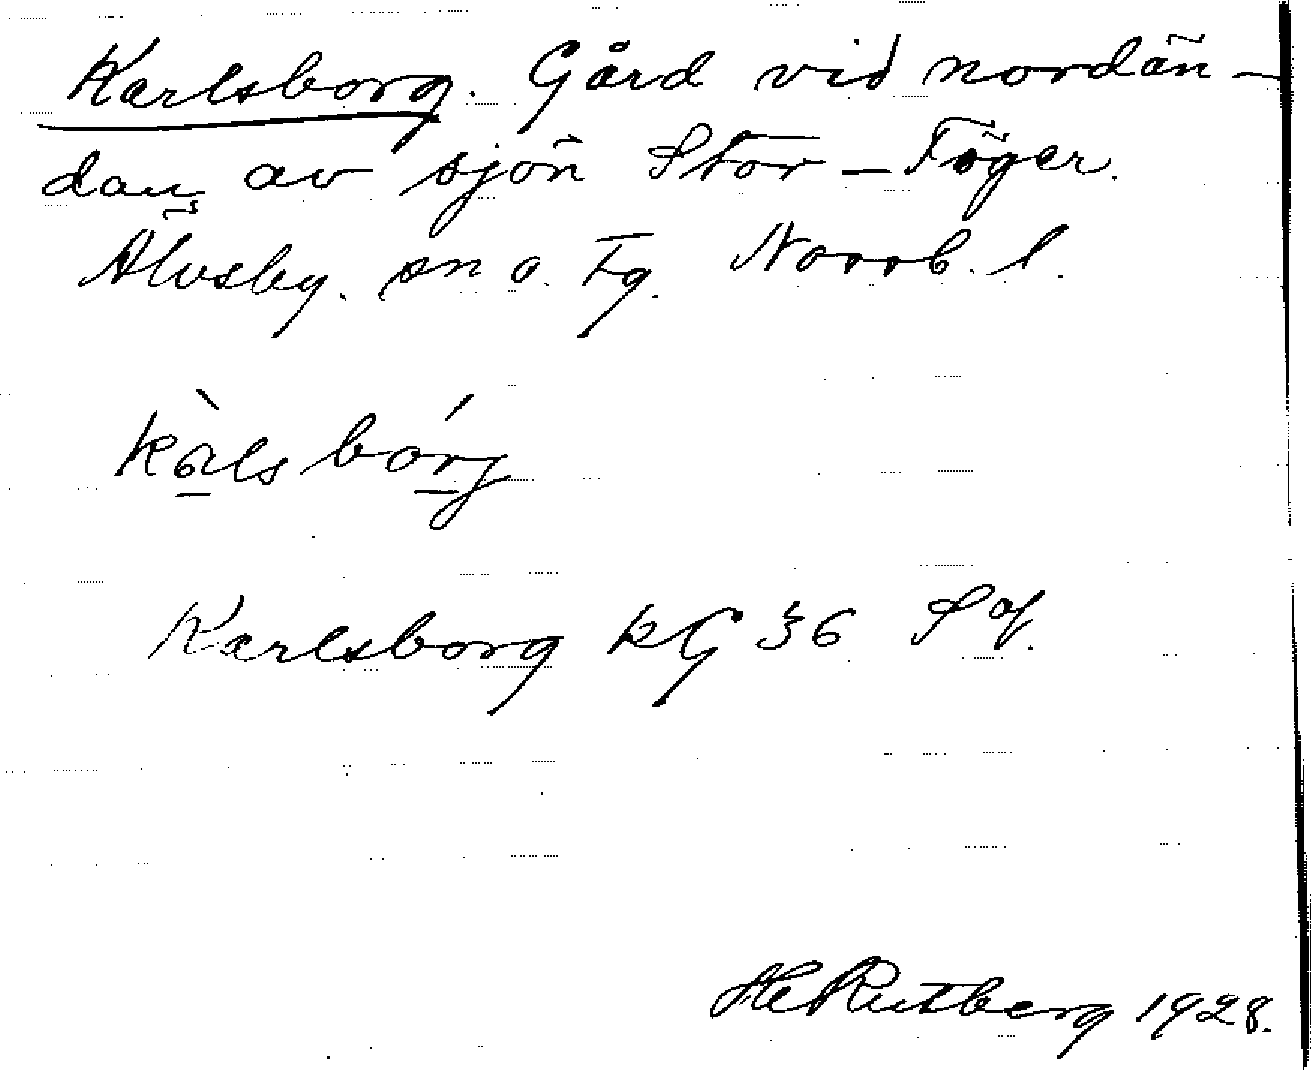 Karlsborg. Gård vid nordän-
dan av sjön Stor-Töger.
Älvsby. sn o. Tg. Norrb. l.
kàlsbórg
Karlsborg kG 36 Sof.
HeRutberg 1928.